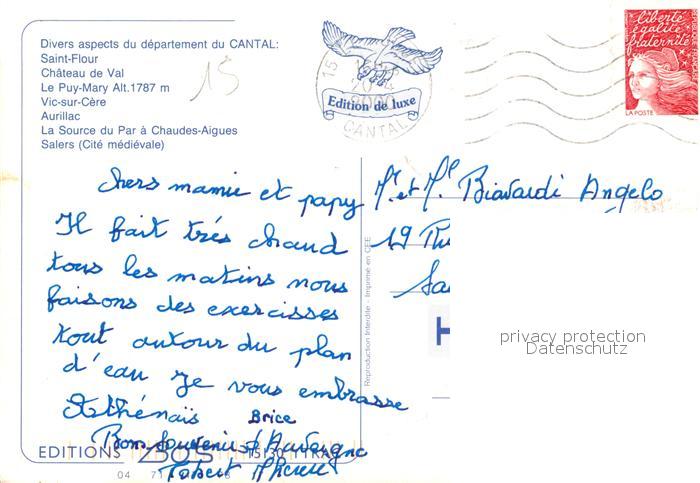 Divers aspects du département du CANTAL:
Saint-Flour
Château de Val
Le Puy-Mary Alt.1787 m
Vic-sur-Cère
Aurillac
La Source du Par à Chaudes-Aigues
Salers (Cité médiévale)
15
15
2000
Edition de luxe
CANTAL
liberté
égalité
fraternité
LA POSTE
chers mamie et papy
Il fait très chaud
tous les matins nous
faisons des excercisses
tout autour du plan
d'eau Je vous embrasse
Athénaïs Brice
Bon Souvenir d'Auvergne
Mr et Me Biavardi Angelo
19 Ru
Sa
privacy protection
Datenschutz
Reproduction Interdite - Imprimé en CEE
EDITIONS
15130 YTRAC
04 71